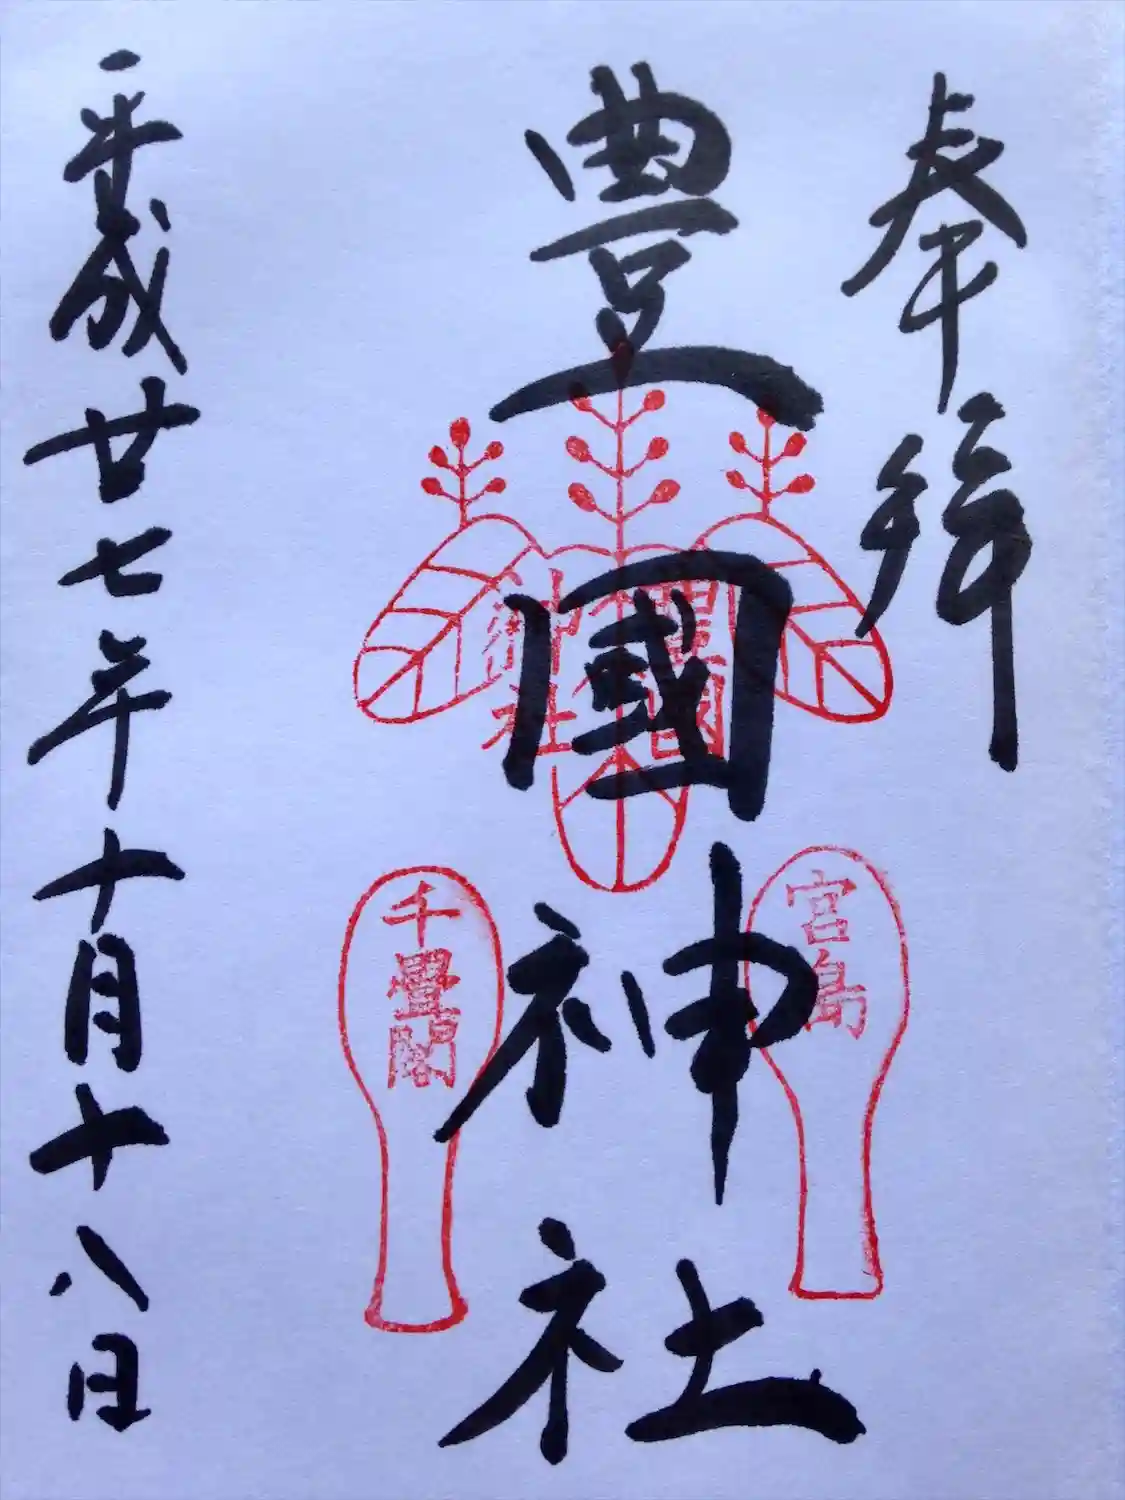 奉拝
豊國神社
豊國
神社
宮島
千畳閣
平成廿七年十月十八日